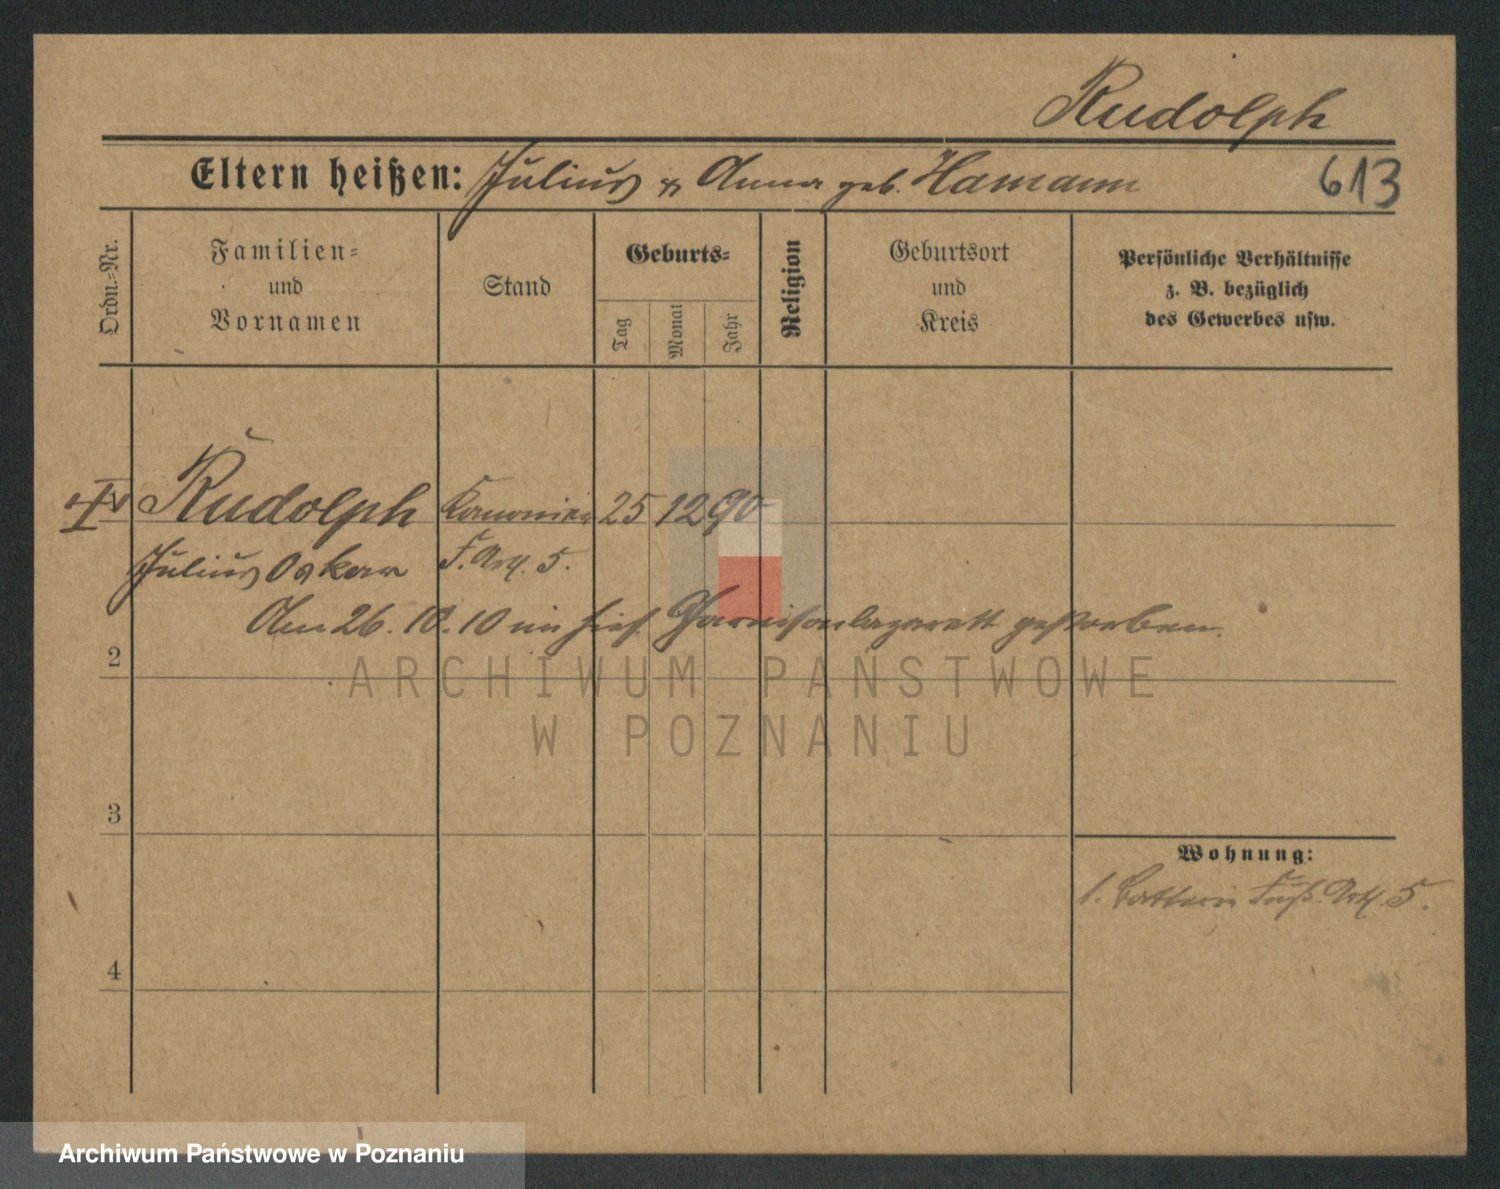 Rudolph
Eltern heißen: Julius & Anna geb. Hamann 613
Ordn.-Nr.
Familien- und Vornamen
Stand
Geburts-
Tag
Monat
Jahr
Religion
Geburtsort und Kreis
Persönliche Verhältnisse
z. B. bezüglich
des Gewerbes usw.
Rudolph Kanonier 25 12 90
Julius Oskar F. Art. 5.
Am 26.10.10 im hies. Garnisonlazarett gestorben.
2
3
4
Wohnung:
1. Batterie Fuß. Art. 5.
ARCHIWUM PAŃSTWOWE
W POZNANIU
Archiwum Państwowe w Poznaniu